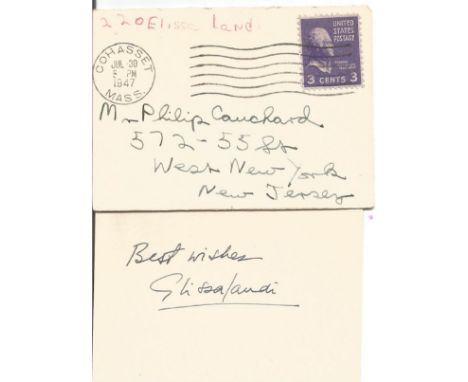 220 Elissa Landi
COHASSET
JUL 30
5 PM
1947
MASS.
UNITED STATES POSTAGE
3 CENTS 3
Mr Philip Cauchard
572-55 St
West New York
New Jersey
Best wishes
Elissa Landi